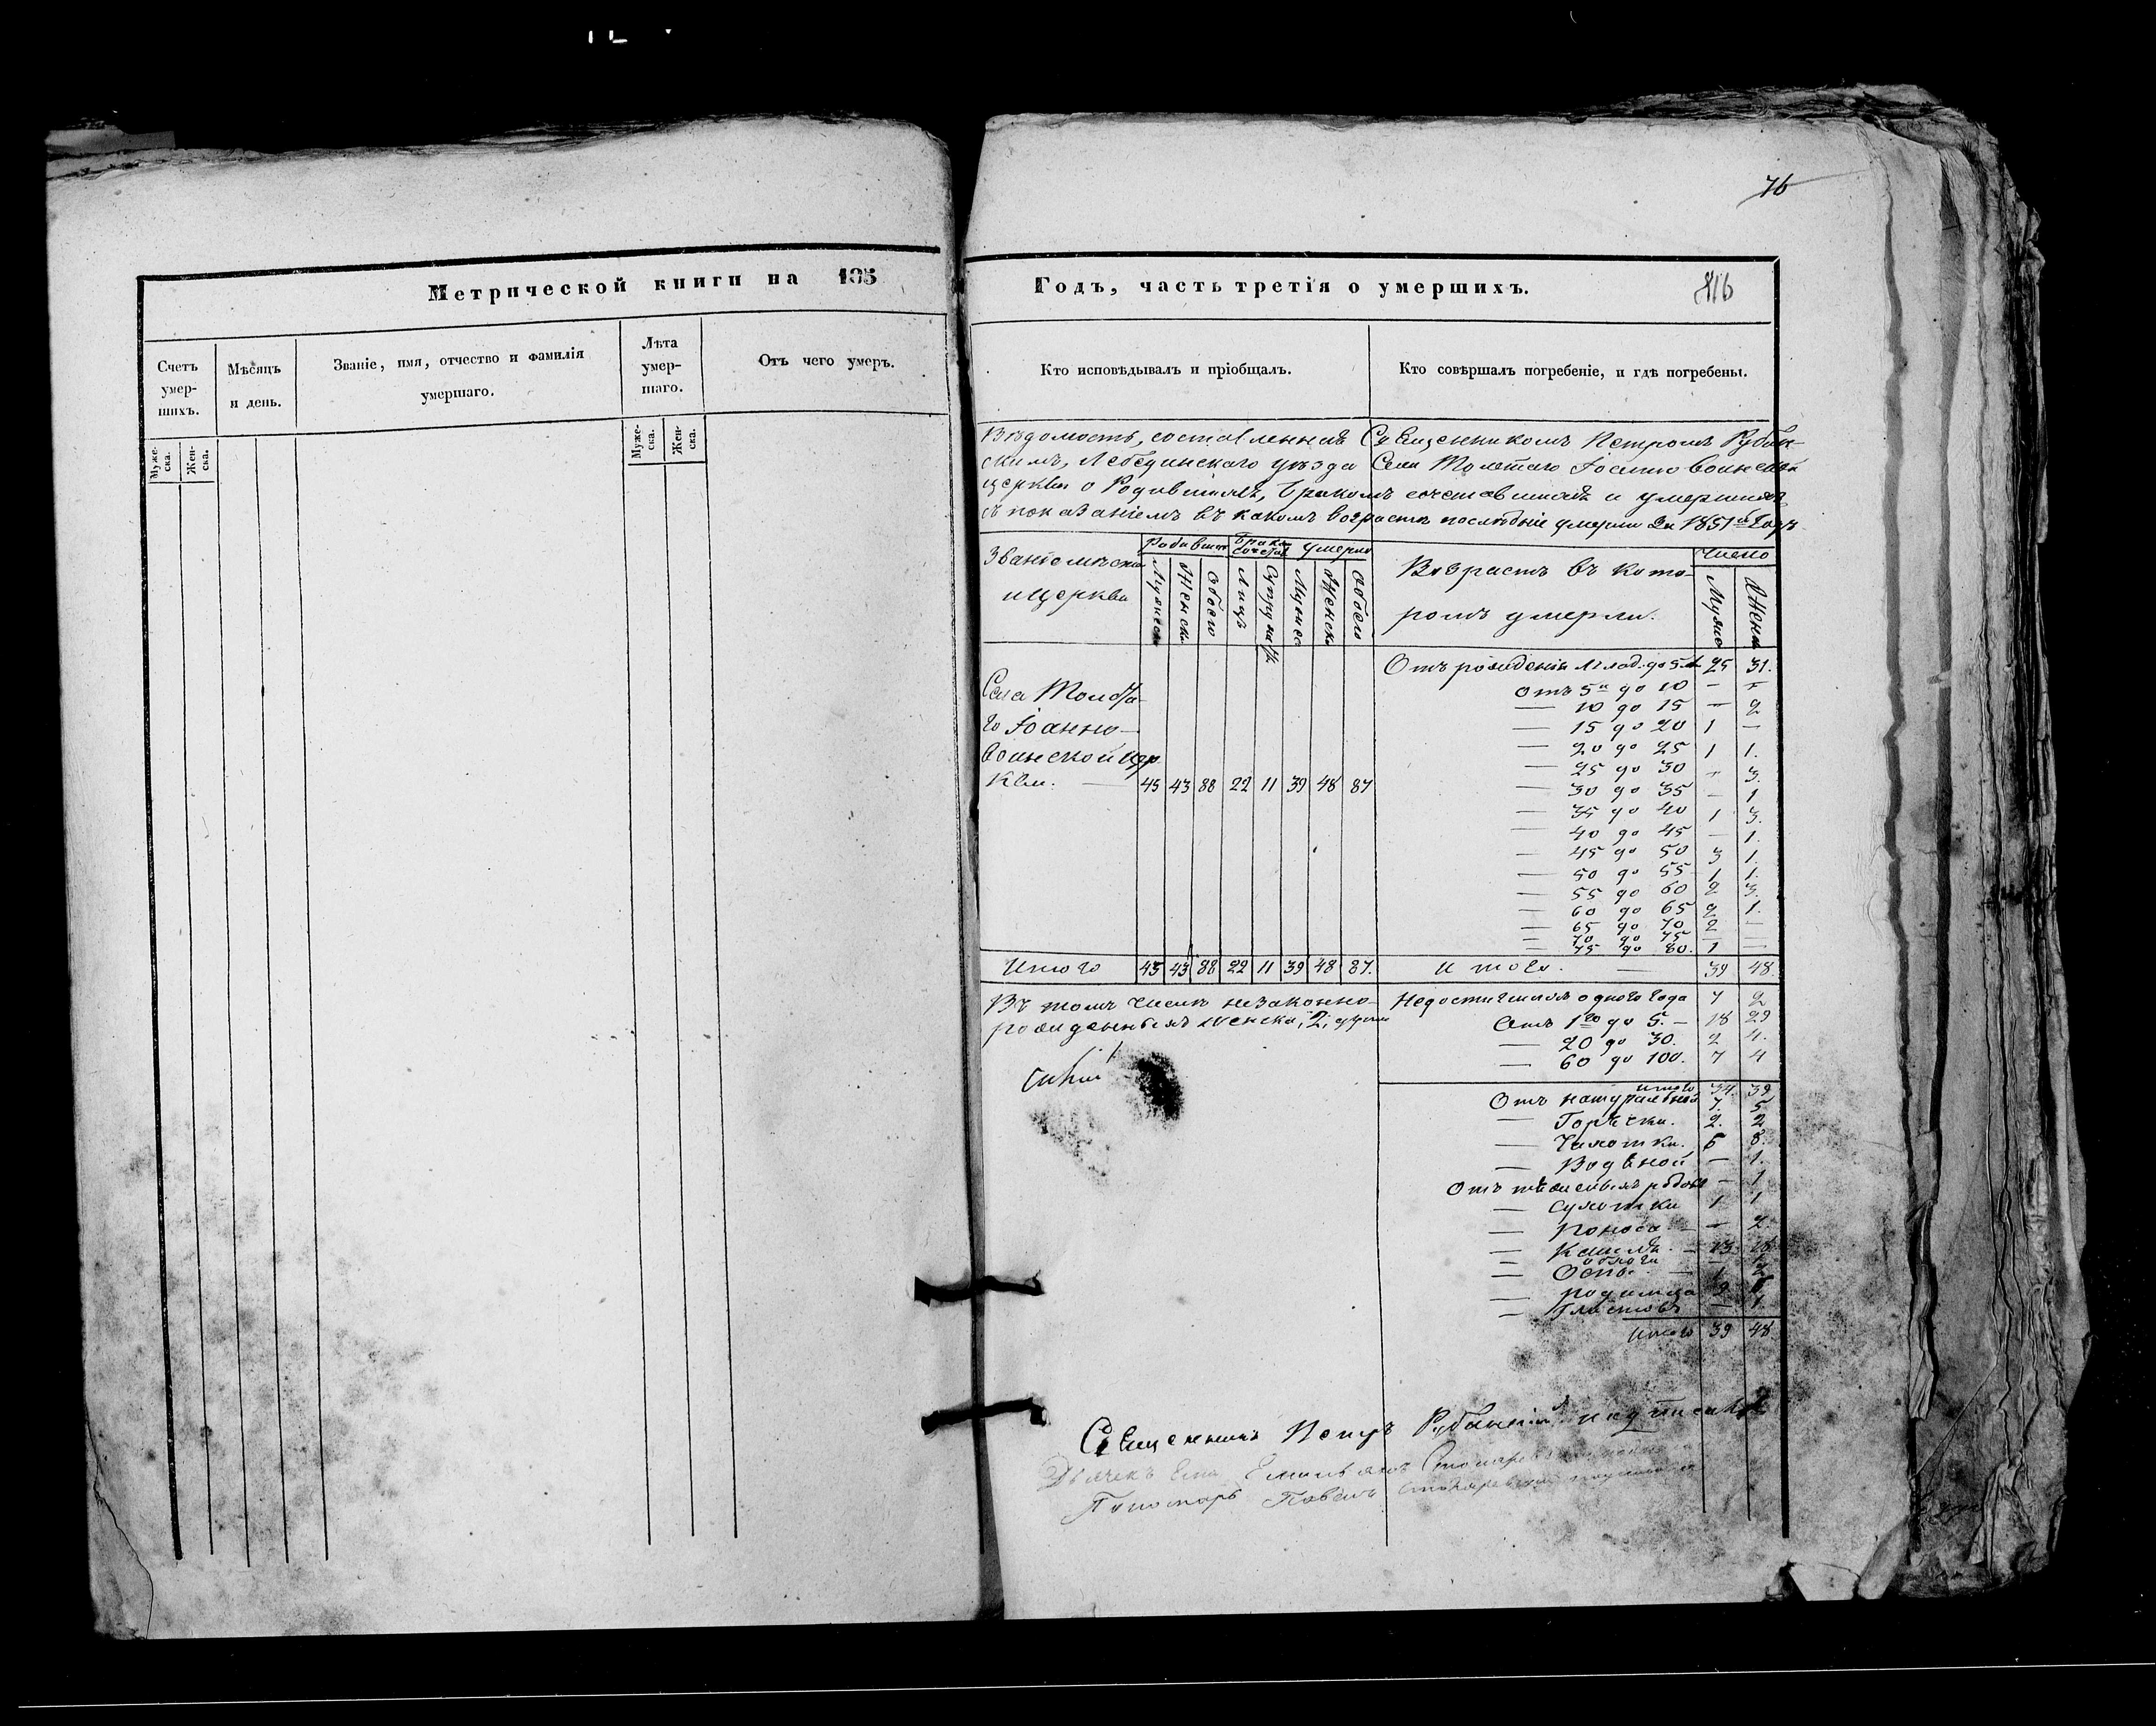 76
Метрической книги на 185
Счетъ умер-шихъ.
Муже-ска.
Жен-ска.
Мѣсяцъ и день.
Званіе, имя, отчество и фамилія умершаго.
Лѣта умер-шаго.
Муже-ска.
Жен-ска.
Отъ чего умеръ.
Годъ, часть третія о умершихъ.
Кто исповѣдывалъ и пріобщалъ.
Кто совѣршалъ погребеніе, и гдѣ погребены.
Вѣдомость, составленная Священникомъ Петромъ Рубан-
скимъ, Лебединскаго уѣзда Села Толстаго Іоанно Воинской
церкви о Родившихся, бракомъ сочетавшихся и умершихъ
съ показаніемъ въ какомъ возрастѣ послѣдніе умерли за 1851й годъ
Званіе мѣста и церкви
Родивших
Мужеск
Женска
Обоего
Брако сочетав
Лицъ
Супруж
Умерло
Мужес
Женска
Обоего
Возрастъ въ кото-
ромъ умерли.
Число
Мужес
Женс
Села Толста-
го Іоанно-
Воинской цер
кви. — 45 43 88 22 11 39 48 87
Отъ рожденія млад. до 5 л 25 31.
Отъ 5и до 10 — —
— 10 до 15 — 2
— 15 до 20 1 —
— 20 до 25 1 1.
— 25 до 30 — 3.
— 30 до 35 — 1
— 35 до 40 1 3.
— 40 до 45 — 1.
— 45 до 50 3 1.
— 50 до 55 1 1.
— 55 до 60 2 3.
— 60 до 65 2 1.
— 65 до 70 2 —
— 70 до 75 — —
— 75 до 80. 1 —
Итого 45 43 88 22 11 39 48 87.
Итого. — 39 48.
Въ томъ числѣ незаконно-
рожденныхъ женска, 2, души
Недостигшихъ одного года 7 2
Отъ 1го до 5. — 18 29
— 20 до 30. 2 4.
— 60 до 100. 7 4
Итого 34. 39
Отъ натуральной 7. 5
— Горячки. 2. 2
— Чахотки. 5 8.
— Водяной — 1.
Отъ тяжелыхъ родовъ — 1
— Сухотки 1 1
— Поноса — 2.
— Кашля. — 13 18
— Оспы. — 1 2
— родимца 9 5
— Глистовъ — 1.
Итого 39 48
Священникъ Петръ Рубанскій подписалъ
Дьячекъ Емельянъ
Пономарь Павелъ